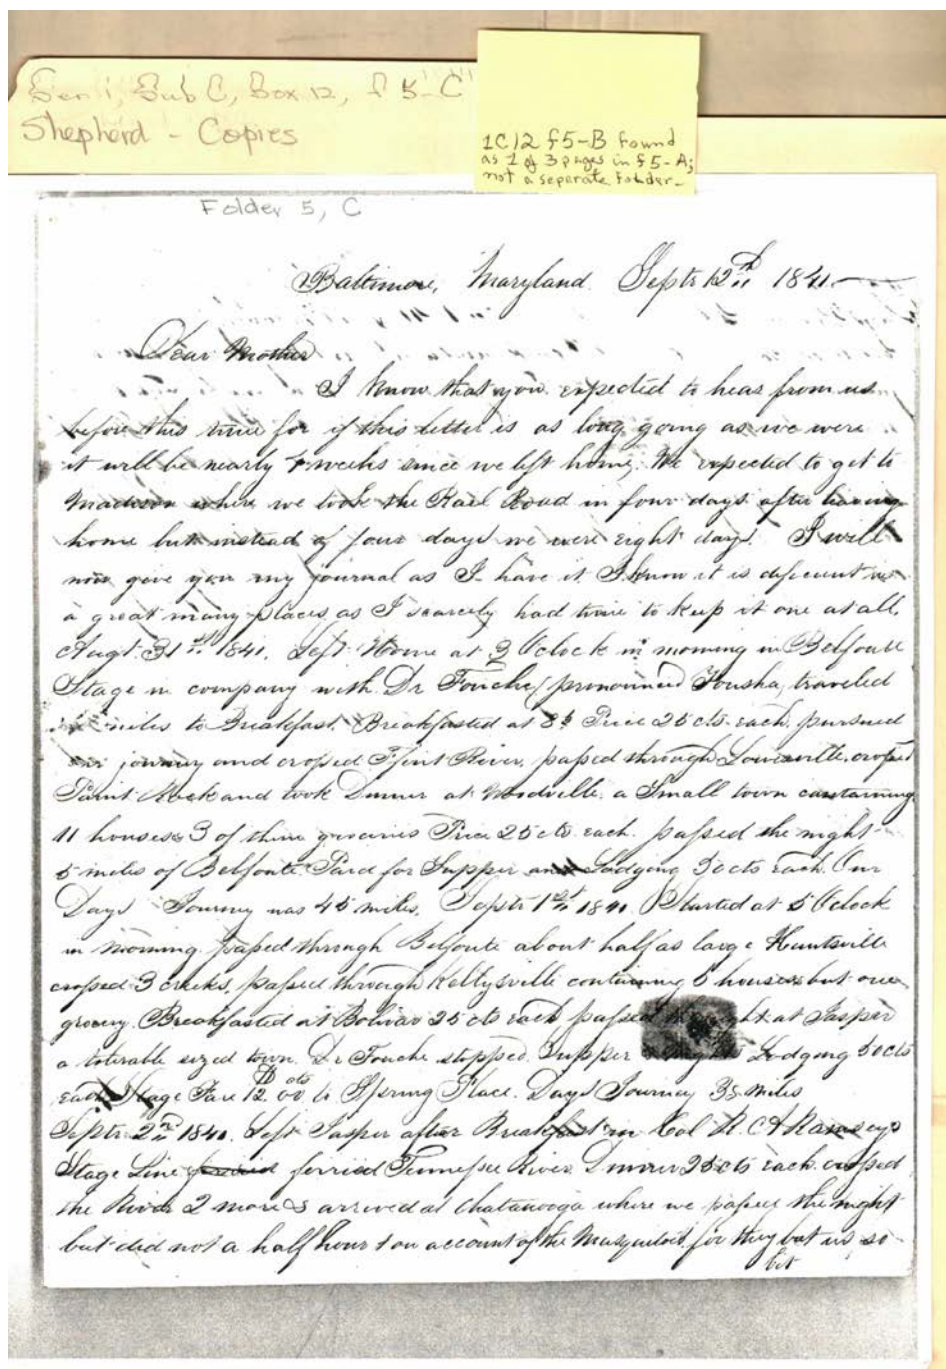 Ser 1, Sub C, Box 12, f 5-"C"
Shepherd - Copies
1C12 f5-B found
as 1 of 3 pages in f5-A;
not a separate folder-
Folder 5, C
Baltimore, Maryland. Septr 12th 1841
Dear Mother
I know that you expected to hear from us
before this time for if this letter is as long going as we were
it will be nearly 4 weeks since we left home, We expected to get to
Madison where we took the Rail Road in four days after leaving
home but instead of four days we were eight days. I will
now give you my journal as I have it I know it is deficient in
a great many places as I scarcely had time to keep it one at all.
Augt. 31st 1841. Left Home at 3 Oclock in morning in Belfonte
Stage in company with Dr Fouche (pronounced Fousha, traveled
miles to Breakfast. Breakfasted at Price 25 cts. each. pursued
our journey and crossed Flint River, passed through Lowesville, crossed
Paint Rock and took Dinner at Woodville. a Small town containing
11 houses & 3 of them groceries Price 25 cts each. passed the night
5 miles of Belfonte Paid for Supper and Lodging 50 cts each. Our
Days Journey was 45 miles. Septr 1st 1841. Started at 5 Oclock
in morning. passed through Belfonte about half as large Huntsville
crossed 3 creeks, passed through Kellysville containing 6 houses but one
grocery. Breakfasted at Bolivar 25 cts each passed the night at Jasper
a tolerable sized town. Dr Fouche stopped. Supper Lodging 50 cts
each Stage Fare $12.00 cts to Spring Place. Days Journey 35 miles
Septr 2nd 1841. Left Jasper after Breakfast in Col R. C. A Ramseys
Stage Line ferried Tennessee River Dinner 25 cts each. crossed
the River 2 more & arrived at Chatanooga where we passed the night
but did not a half hour on account of the Musquetoes for they bat us so
bit